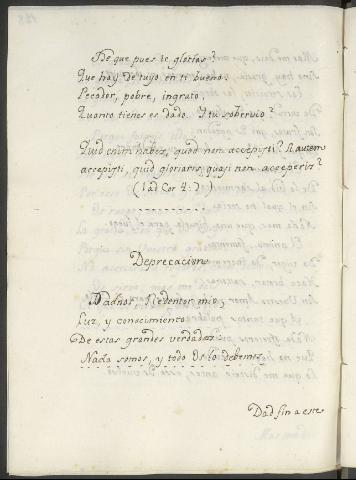 De que pues te glorias?
Que hay de tuyo en ti bueno?
Pecador, pobre, ingrato,
Quanto tienes es dado. Y tu sobervio?
Quid enim habes, quod non accepisti? Si autem
accepisti, quid gloriaris, quasi non acceperis?
(1 ad Cor 4:7)
Deprecacion
Dadnos, Redentor mio,
Luz, y conocimiento
De estas grandes verdades:
Nada somos, y todo os lo debemos.
Dad fin a este